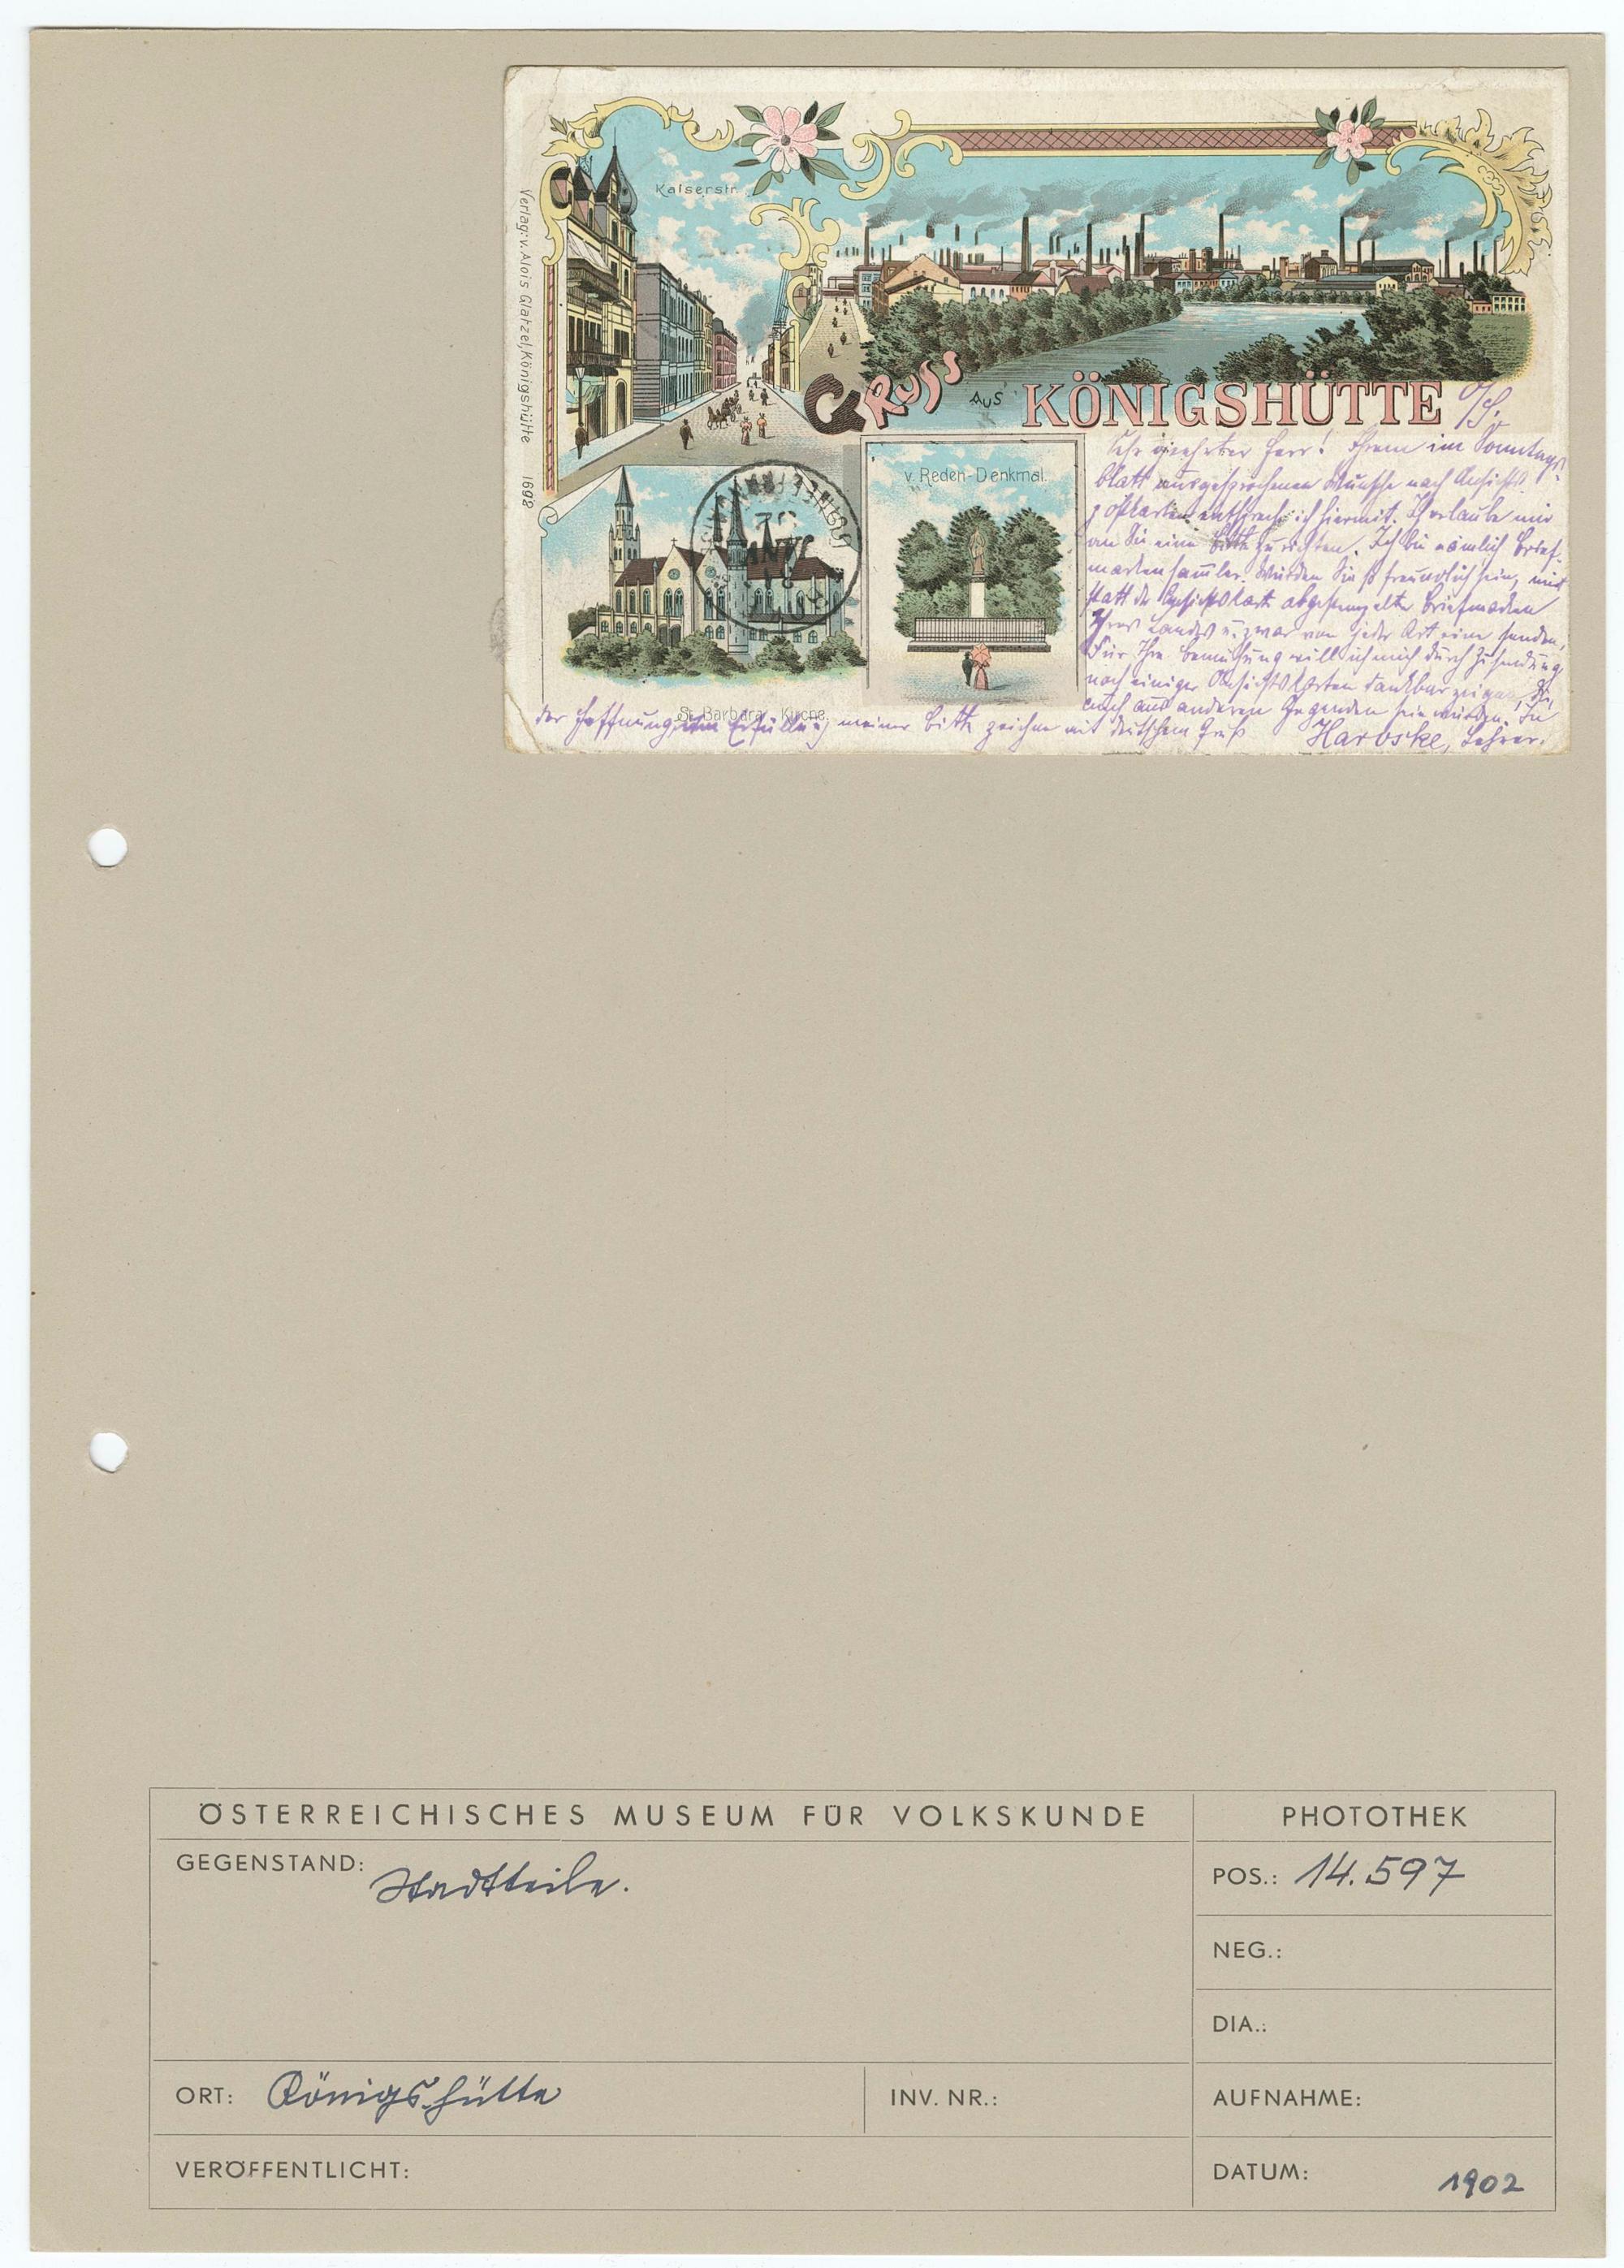 Kaiserstr.
Verlag: v. Alois Glatzel, Königshütte 1698
GRUSS AUS KÖNIGSHÜTTE O/S.
v. Reden-Denkmal.
St. Barbara Kirche
Sehr geehrter Herr! Ihrem im Sonntags-
blatt ausgesprochenen Wunsche nach Ansichts-
postkarten entspreche ich hiermit. Ich erlaube mir
an Sie eine Bitte zu richten. Ich bin nämlich Brief-
markensammler. Würden Sie so freundlich sein, mir
statt der Ansichtskarte abgestempelte Briefmarken
Ihres Landes u. zwar von jeder Art eine senden,
Für Ihre Bemühung will ich mich durch Zusendung
noch einiger Ansichtskarten dankbar zeigen, die
auch aus anderen Gegenden sein würden. In
der Hoffnung Erfüllung meiner Bitte zeichne mit deutschem Gruß Haroske, Lehrer.
ÖSTERREICHISCHES MUSEUM FÜR VOLKSKUNDE
PHOTOTHEK
GEGENSTAND: Stadtteile.
POS.: 14.597
NEG.:
DIA.:
ORT: Königshütte
INV. NR.:
AUFNAHME:
VERÖFFENTLICHT:
DATUM: 1902